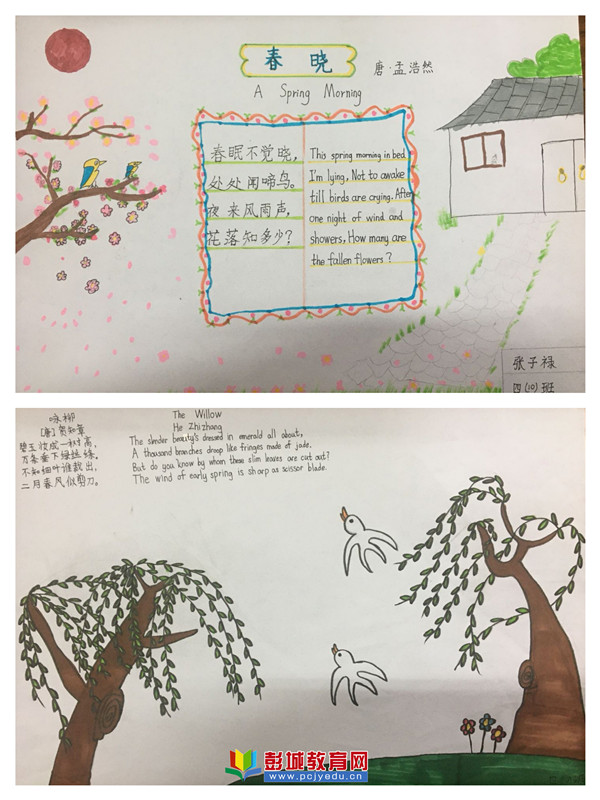 春 晓
唐·孟浩然
A Spring Morning
春眠不觉晓，
处处闻啼鸟。
夜来风雨声，
花落知多少？
This spring morning in bed
I'm lying, Not to awake
till birds are crying. After
one night of wind and
showers, How many are
the fallen flowers?
张子禄
四(10)班
咏柳
[唐]贺知章
碧玉妆成一树高，
万条垂下绿丝绦。
不知细叶谁裁出，
二月春风似剪刀。
The Willow
He Zhizhang
The slender beauty's dressed in emerald all about,
A thousand branches droop like fringes made of jade.
But do you know by whom these slim leaves are cut out?
The wind of early spring is sharp as scissor blade.
彭城教育网
www.pcjyedu.cn